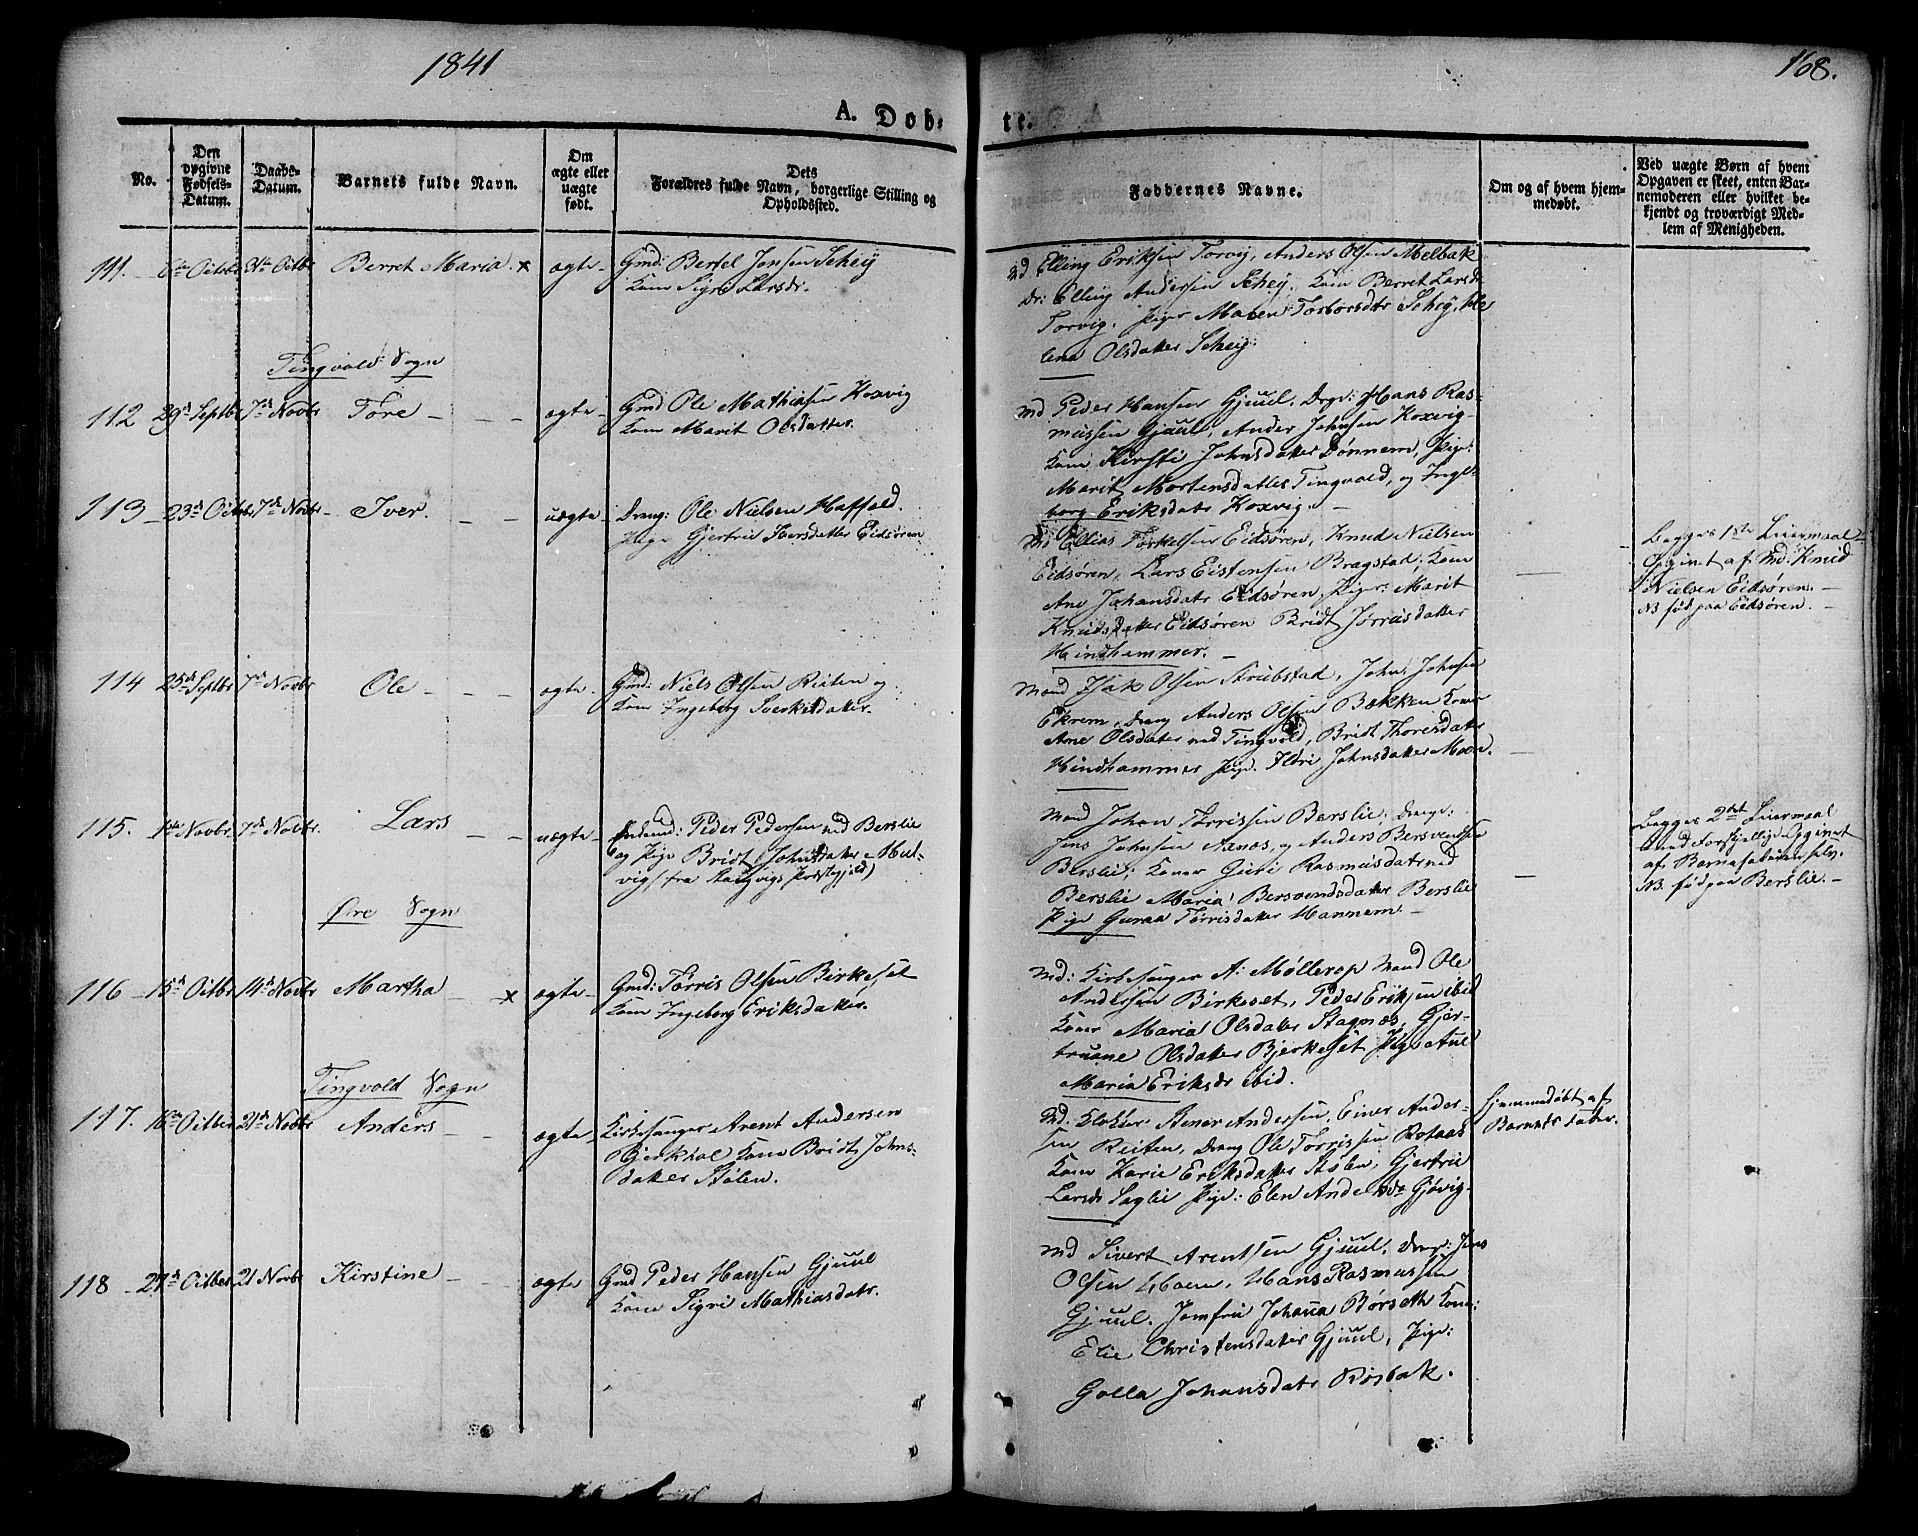 1841
168.
A. Døb=
te.
No.
Den opgivne Fødsels-Datum.
Daabs-Datum.
Barnets fulde Navn.
Om ægte eller uægte født.
Forældres fulde Navn, borgerlige Stilling og Opholdssted.
Faddernes Navne.
Om og af hvem hjemmedøbt.
Ved uægte Børn af hvem Opgaven er skeet, enten Barnemoderen eller hvilket bekjendt og troværdigt Medlem af Menigheden.
111.
Berret Maria. x
ægte
Gmd: Bertel Jonsen Schey
Kone Sigri Larsdr.
Elling Eriksen Torvig, Anders Olsen Melbak
Dr: Elling Andersen Schey. Kone Berret Larsd
Torvig. Pige Maren Torborsdtr Schey, He
lena Olsdatter Schey.
Tingvold Sogn
112 29d Septbr 7d Novbr Tore
ægte
Gmd Ole Mathiasen Koxvig
Kone Marit Olsdatter.
Md Peder Hansen Gjuul. Drge: Hans Ras-
mussen Gjuul, Ander Johnsen Koxvig
Kone Kirsti Johnsdatter Dønnem, Pige:
Marit Mortensdatter Tingvold, og Inge-
borg Eriksdatr Koxvig.
113 23d Octbr 7d Novbr Iver.
uægte
Drang: Ole Nielsen Haffold.
Pige Gjertrue Iversdatter Eidsøren
Md Ellias Torkelsen Eidsøren, Knud Nielsen
Eidsøren, Lars Eistensen Bragstad; Kone
Ane Johansdatr Eidsøren, Piger: Marit
Knudsdatter Eidsøren Bridt Jørrisdatter
Hindhammer.
Begges 1ste Leiermaal
Opgivet af Md: Knud
Nielsen Eidsøren.
NB født paa Eidsøren.
114 25d Septbr 7d Novbr Ole
ægte
Gmd: Niels Olsen Reiten og
Kone Ingeborg Sverkisdatter.
Mand Isak Olsen Strubstad, John Johnsen
Ekrem, Drang Anders Olsen Bakken Kone
Ane Olsdatter ned Tingvold, Bridt Thoresdatter
Hindhammer Pige. Ildri Johnsdatter Moen.
115. 1ste Novbr. 7d Novbr. Lars
uægte
Peder Pedersen ned Berslie
og Pige Bridt Johnsdatter Mul-
vig (fra Stangvigs Præstegjeld)
Mand Johan Torrissen Berslie; Drenge:
Jens Johnsen Aanæs, og Anders Bersvendsen
Berslie; Koner Guri Rasmusdatr ned
Berslie Maria Bersvendsdatter Berslie
Pige Guraa Torrisdatter Hannem.
Begges 2det Leiermaal
med forskjellige Opgivet
af Barnefaderen selv.
NB. født paa Berslie.
Øre Sogn
116 15d Octbr 14d Novbr Martha x
ægte
Gmd: Torris Olsen Birkeset
Kone Ingeborg Eriksdatter.
Md: Kirkesanger A: Møllerop Mand Ole
Andersen Birkeset, Peder Eriksen ibid
Koner Maria Olsdatter Stagnæs, Gjer-
truane Olsdatter Bjerkeset Pige Ane
Maria Eriksdr ibid.
Tingvold Sogn
117. 16de Octber 21d Novbr Anders
ægte
Kirkesanger Arent Andersen
Bjerkhol Kone Bridt Johns-
datter Stølen.
Md. Klokker Stener Andersen, Einer Ander-
sen Reiten, Drang Ole Torrissen Rotaas
Kone Karie Eriksdatter Stølen, Gjertrue
Larsdr Saglie Pige: Elen Andersdtr Gjøvig.
Hjemmedøbt af
Barnets Fader.
118 27d Octber 21 Novbr Kirstine
ægte
Gmd Peder Hansen Gjuul
Kone Sigri Mathiasdatr.
Md Sivert Arentsen Gjuul, Drge: Jens
Olsen Moen, Hans Rasmussen
Gjuul. Jomfru Johana Børseth Kone:
Elie Christensdatter Gjuul, Pige:
Golla Johansdatr Rosbak.